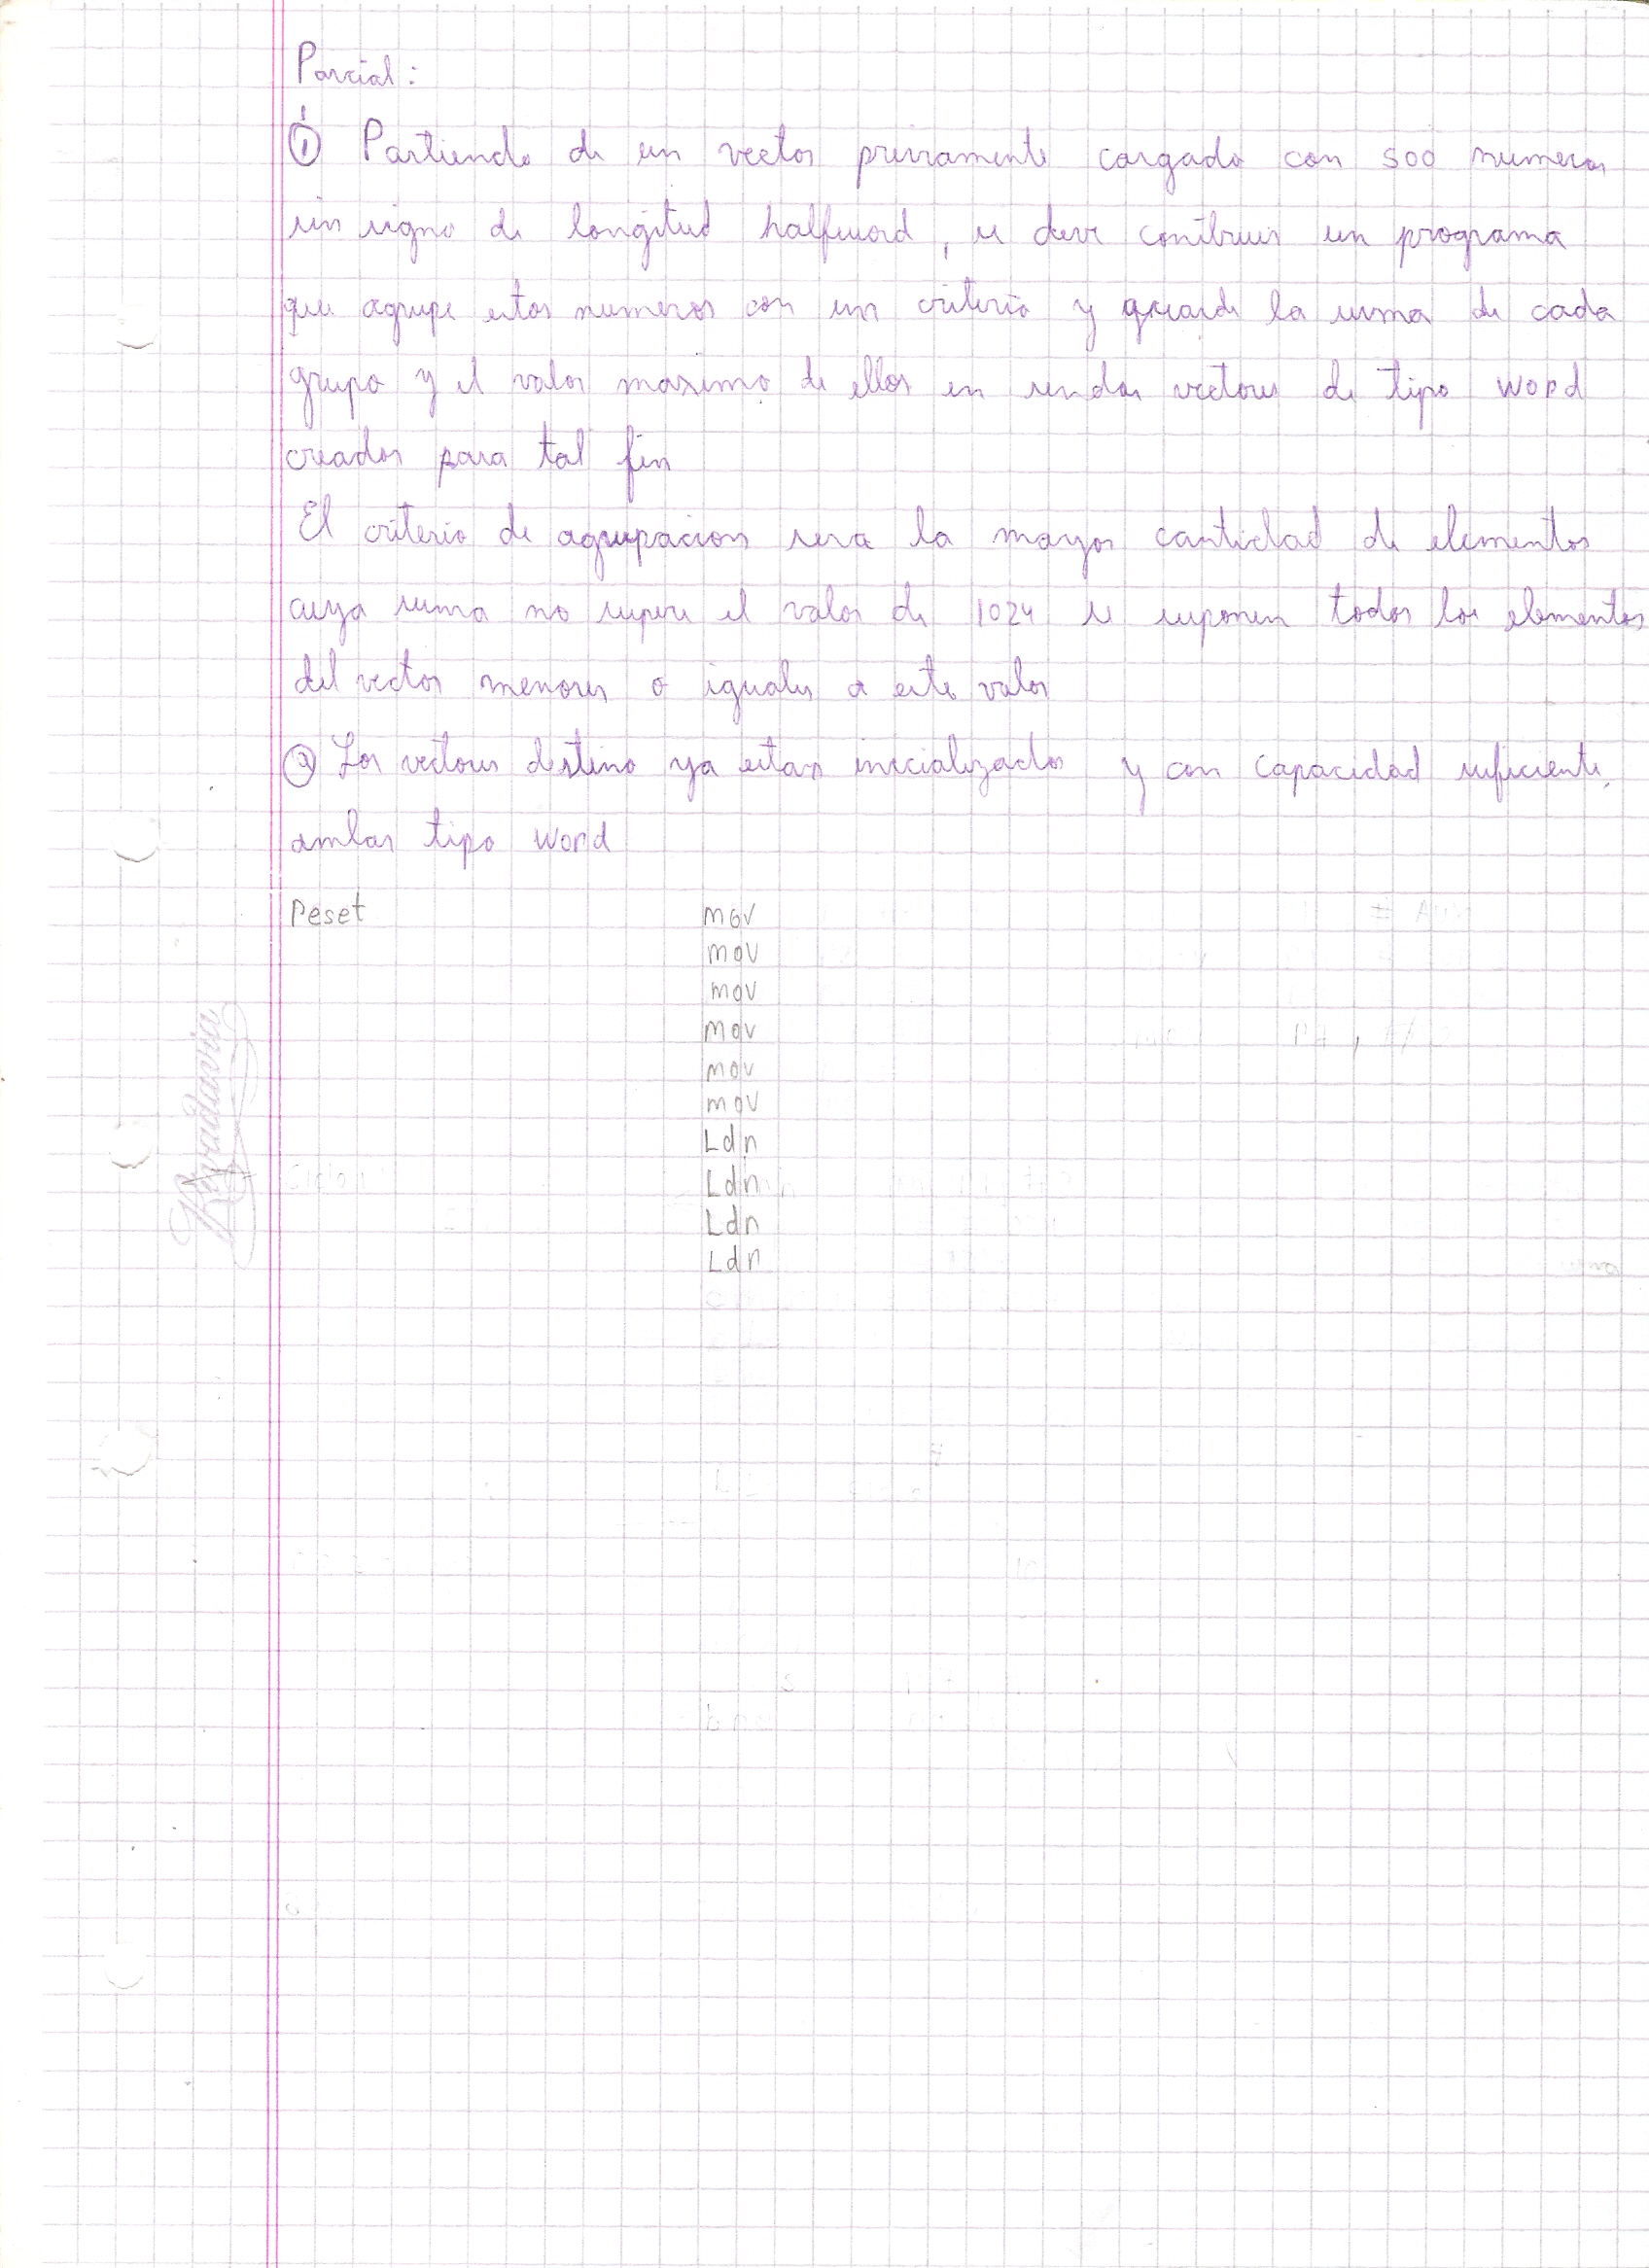 Parcial:
① Partiendo de un vector previamente cargado con 500 numeros
sin signo de longitud halfword, se deve contibruir un programa
que agrupe estos numeros con un criterio y guarde la suma de cada
grupo y el valor maximo de ellos en sendos vectores de tipo word
creados para tal fin
El criterio de agrupacion sera la mayor cantidad de elementos
cuya suma no supere el valor de 1024 se suponen todos los elementos
del vector menores o iguales a este valor
② Los vectores destino ya estan inicializados y con capacidad suficiente,
ambas tipo word
Reset mov
mov
mov
mov
mov
mov
Ldr
Ldr
Ldr
Ldr
Rivadavia